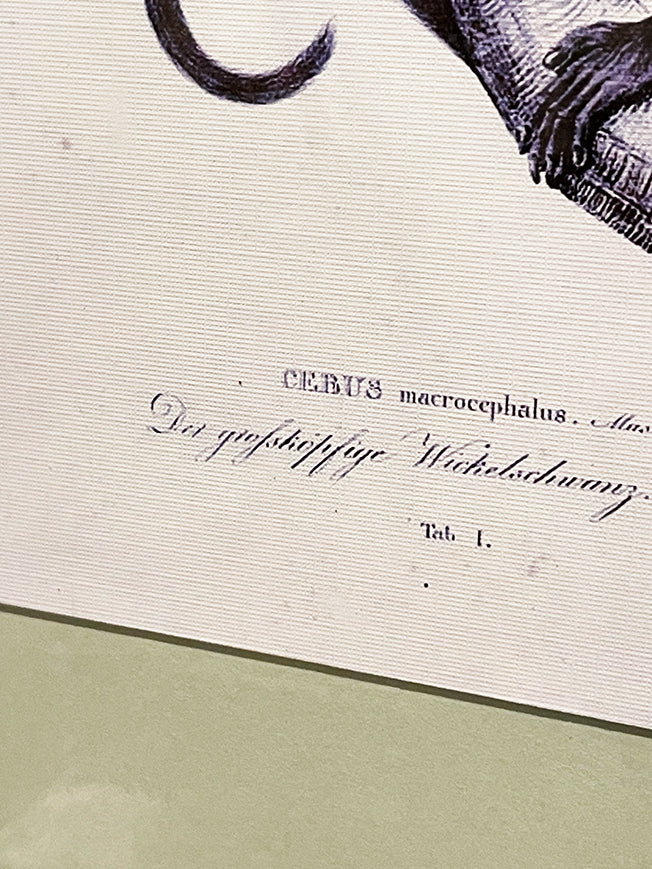 CEBUS macrocephalus. Mas
Der großsköpfige Wickelschwanz.
Tab. I.